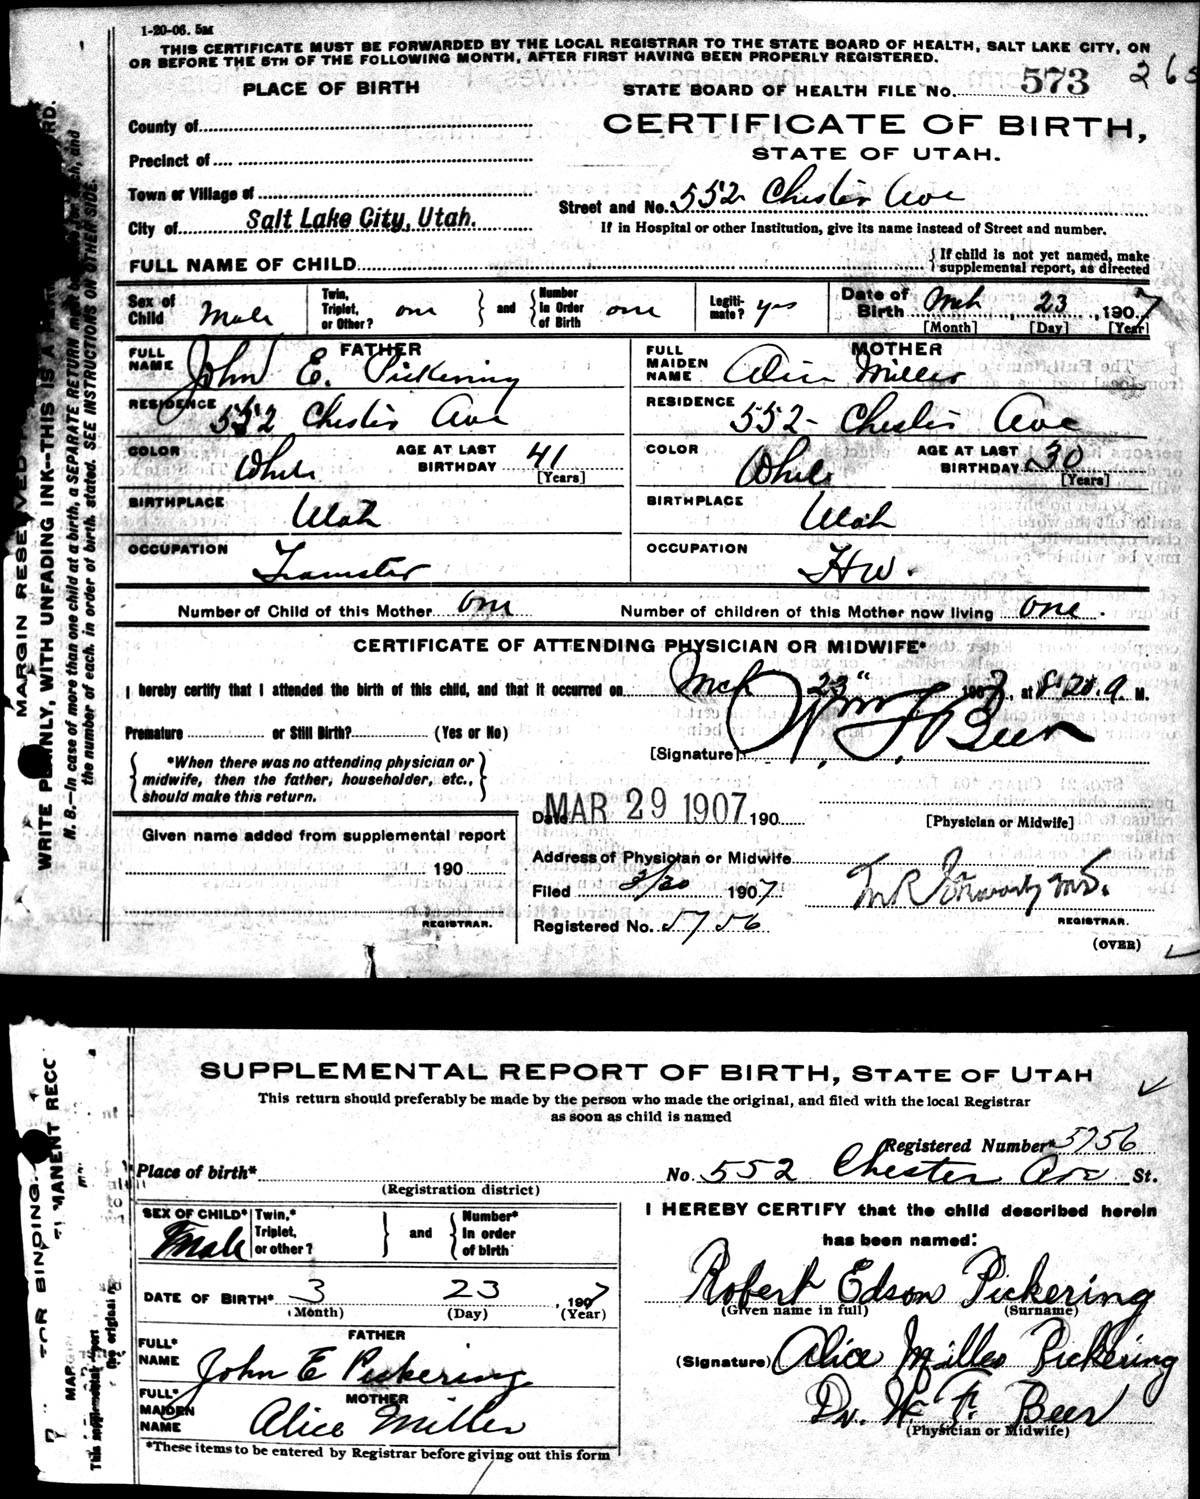 1-20-06. 5M
THIS CERTIFICATE MUST BE FORWARDED BY THE LOCAL REGISTRAR TO THE STATE BOARD OF HEALTH, SALT LAKE CITY, ON
OR BEFORE THE 5TH OF THE FOLLOWING MONTH, AFTER FIRST HAVING BEEN PROPERLY REGISTERED.
PLACE OF BIRTH
STATE BOARD OF HEALTH FILE NO. 573
County of
CERTIFICATE OF BIRTH,
Precinct of
STATE OF UTAH.
Town or Village of
Street and No. 552 Chester Ave
City of Salt Lake City, Utah.
If in Hospital or other Institution, give its name instead of Street and number.
FULL NAME OF CHILD
{ If child is not yet named, make
supplemental report, as directed
Sex of Child Male
Twin, Triplet, or Other? one } and { Number in Order of Birth one
Legitimate? yes
Date of Birth Mch 23, 1907
[Month] [Day] [Year]
FATHER
FULL NAME John E. Pickering
MOTHER
FULL MAIDEN NAME Alice Miller
RESIDENCE 552 Chester Ave
RESIDENCE 552- Chester Ave
COLOR White AGE AT LAST BIRTHDAY 41 [Years]
COLOR White AGE AT LAST BIRTHDAY 30 [Years]
BIRTHPLACE Utah
BIRTHPLACE Utah
OCCUPATION Teamster
OCCUPATION HW.
Number of Child of this Mother one Number of children of this Mother now living one.
CERTIFICATE OF ATTENDING PHYSICIAN OR MIDWIFE*
I hereby certify that I attended the birth of this child, and that it occurred on Mch 23" 1907, at 8:20 a. M.
Premature or Still Birth? (Yes or No)
[Signature] Wm. F. Beer
{ *When there was no attending physician or
midwife, then the father, householder, etc.,
should make this return. }
Date MAR 29 1907 190
[Physician or Midwife]
Given name added from supplemental report
190
REGISTRAR.
Address of Physician or Midwife
Filed 3/30 1907
Registered No. 5756
REGISTRAR.
(OVER)
MARGIN RESERVED
WRITE PLAINLY, WITH UNFADING INK—THIS IS A
N. B.—In case of more than one child at a birth, a SEPARATE RETURN must be and
the number of each, in order of birth, stated. SEE INSTRUCTIONS ON OTHER SIDE.
SUPPLEMENTAL REPORT OF BIRTH, STATE OF UTAH
This return should preferably be made by the person who made the original, and filed with the local Registrar
as soon as child is named
Registered Number* 5756
Place of birth* No. 552 Chester Ave St.
(Registration district)
SEX OF CHILD* Male
Twin,* Triplet, or other? } and { Number* in order of birth
I HEREBY CERTIFY that the child described herein
has been named:
DATE OF BIRTH* 3 23, 1907
(Month) (Day) (Year)
Robert Edson Pickering
(Given name in full) (Surname)
FATHER
FULL* NAME John E Pickering
(Signature) Alice Miller Pickering
MOTHER
FULL* MAIDEN NAME Alice Miller
Dr. W. F. Beer
(Physician or Midwife)
*These items to be entered by Registrar before giving out this form
FOR BINDING.